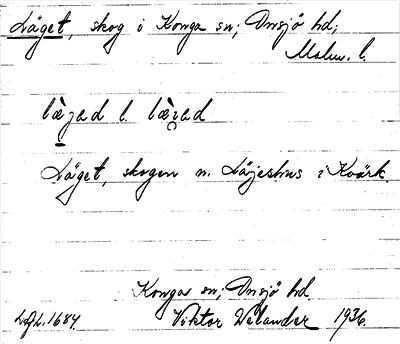 Läget, skog i Konga sn; Onsjö hd;
Malm. l.
læ̀jad l. læ̀jad
Läget, skogen n. Läjeshus i Kvärk.
Konga sn, Onsjö hd.
LAL. 1684. Viktor Welander 1936.